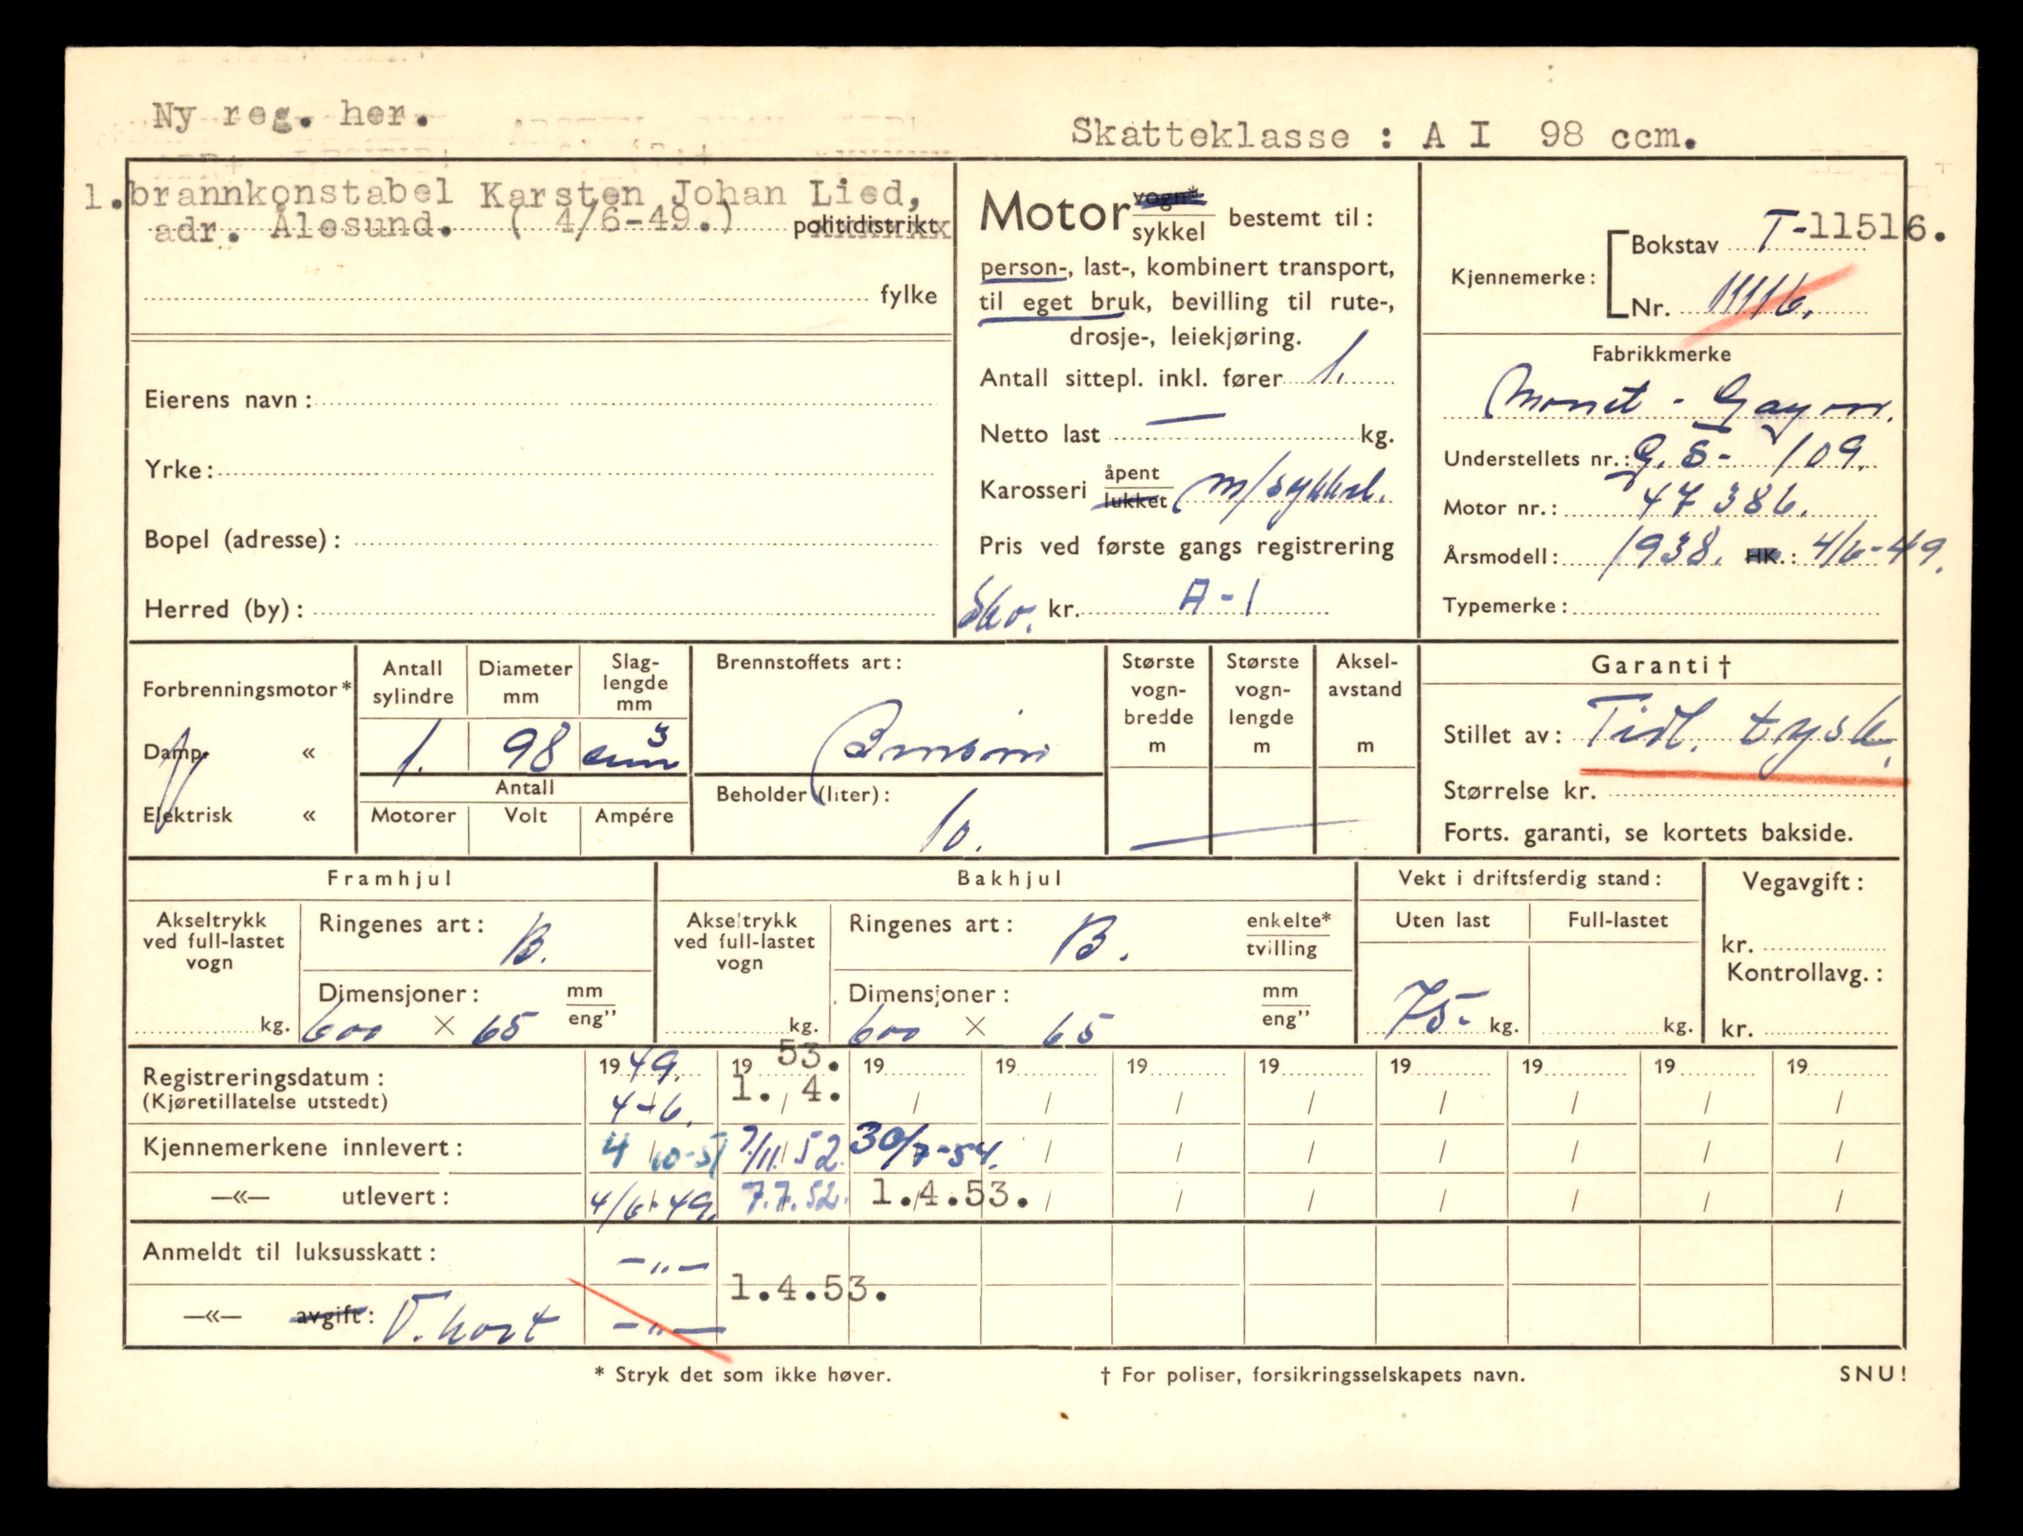 Ny reg. her.
Skatteklasse : A I 98 ccm.
1. brannkonstabel Karsten Johan Lied,
adr. Ålesund. ( 4/6-49.) politidistrikt
fylke
Eierens navn :
Yrke :
Bopel (adresse) :
Herred (by) :
Motor vogn* sykkel bestemt til :
person-, last-, kombinert transport,
til eget bruk, bevilling til rute-,
drosje-, leiekjøring.
Antall sittepl. inkl. fører 1.
Netto last — kg.
Karosseri åpent lukket m/sykkel.
Pris ved første gangs registrering
kr. A-1
Kjennemerke : Bokstav T-11516.
Nr. 11116.
Fabrikkmerke
Monet - Goyon.
Understellets nr. : G.S- 109.
Motor nr. : 47386.
Årsmodell : 1938. HK. : 4/6-49.
Typemerke :
Forbrenningsmotor*
Damp. «
Elektrisk «
Antall sylindre
Diameter mm
Slag- lengde mm
1. 98 cm3
Antall
Motorer Volt Ampére
Brennstoffets art :
Bensin
Beholder (liter) :
10.
Største vogn- bredde m
Største vogn- lengde m
Aksel- avstand m
Garanti †
Stillet av : Tidl. tysk.
Størrelse kr.
Forts. garanti, se kortets bakside.
Framhjul
Akseltrykk ved full-lastet vogn
kg.
Ringenes art : B.
Dimensjoner : mm eng”
600 × 65
Bakhjul
Akseltrykk ved full-lastet vogn
kg.
Ringenes art : B. enkelte* tvilling
Dimensjoner : mm eng”
600 × 65
Vekt i driftsferdig stand :
Uten last Full-lastet
75- kg. kg.
Vegavgift :
kr.
Kontrollavg. :
kr.
Registreringsdatum : 1949. 1953. 19 19 19 19 19 19 19 19
(Kjøretillatelse utstedt) 4-6. 1. / 4. / / / / / / / /
Kjennemerkene innlevert : 4 10-51 7/11 52. 30/7-54. / / / / / / /
—«— utlevert : 4/6-49. 7.7.52. 1.4.53. / / / / / / /
Anmeldt til luksusskatt : —„—
1.4.53.
—«— avgift : V.kort —„—
* Stryk det som ikke høver.
† For poliser, forsikringsselskapets navn.
SNU!